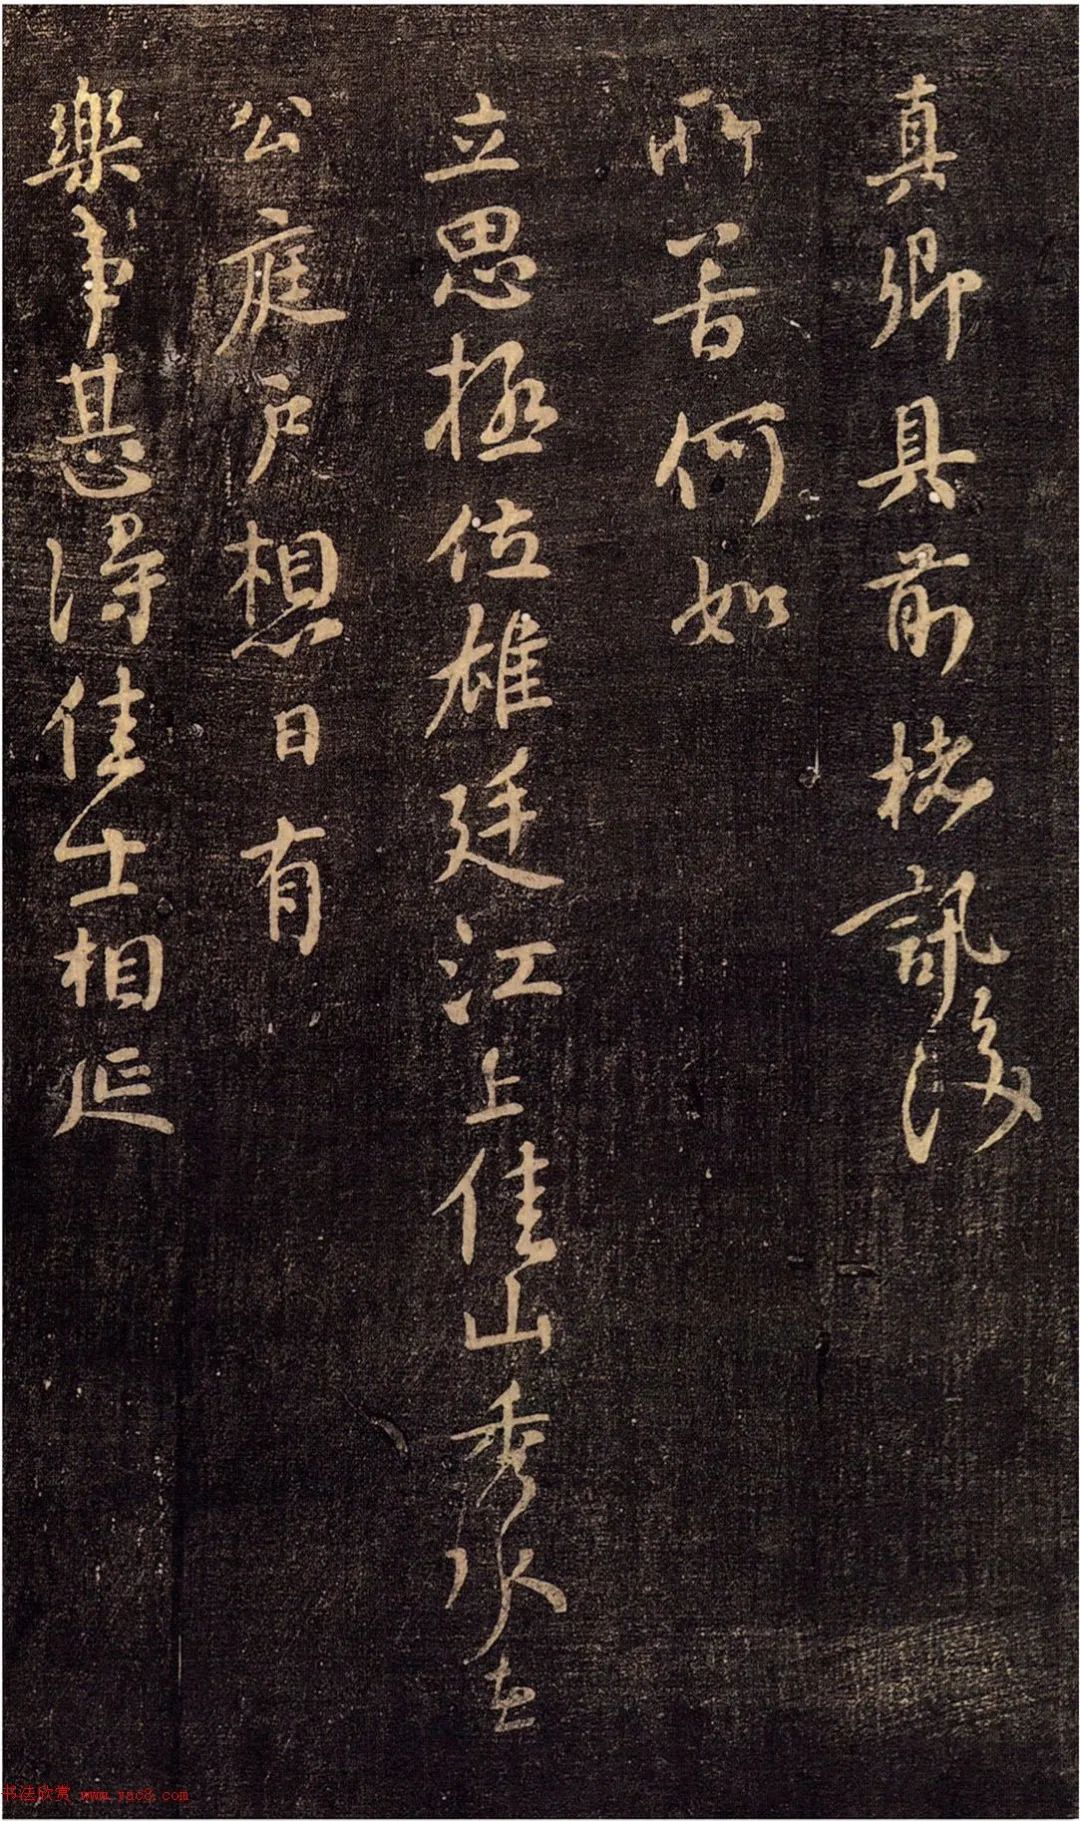 真卿具前楮訊後
所苦何如
立思極位雄廷江上佳山秀水在
公庭戶想日有
樂事甚得佳士相延
书法欣赏 www.yac8.com